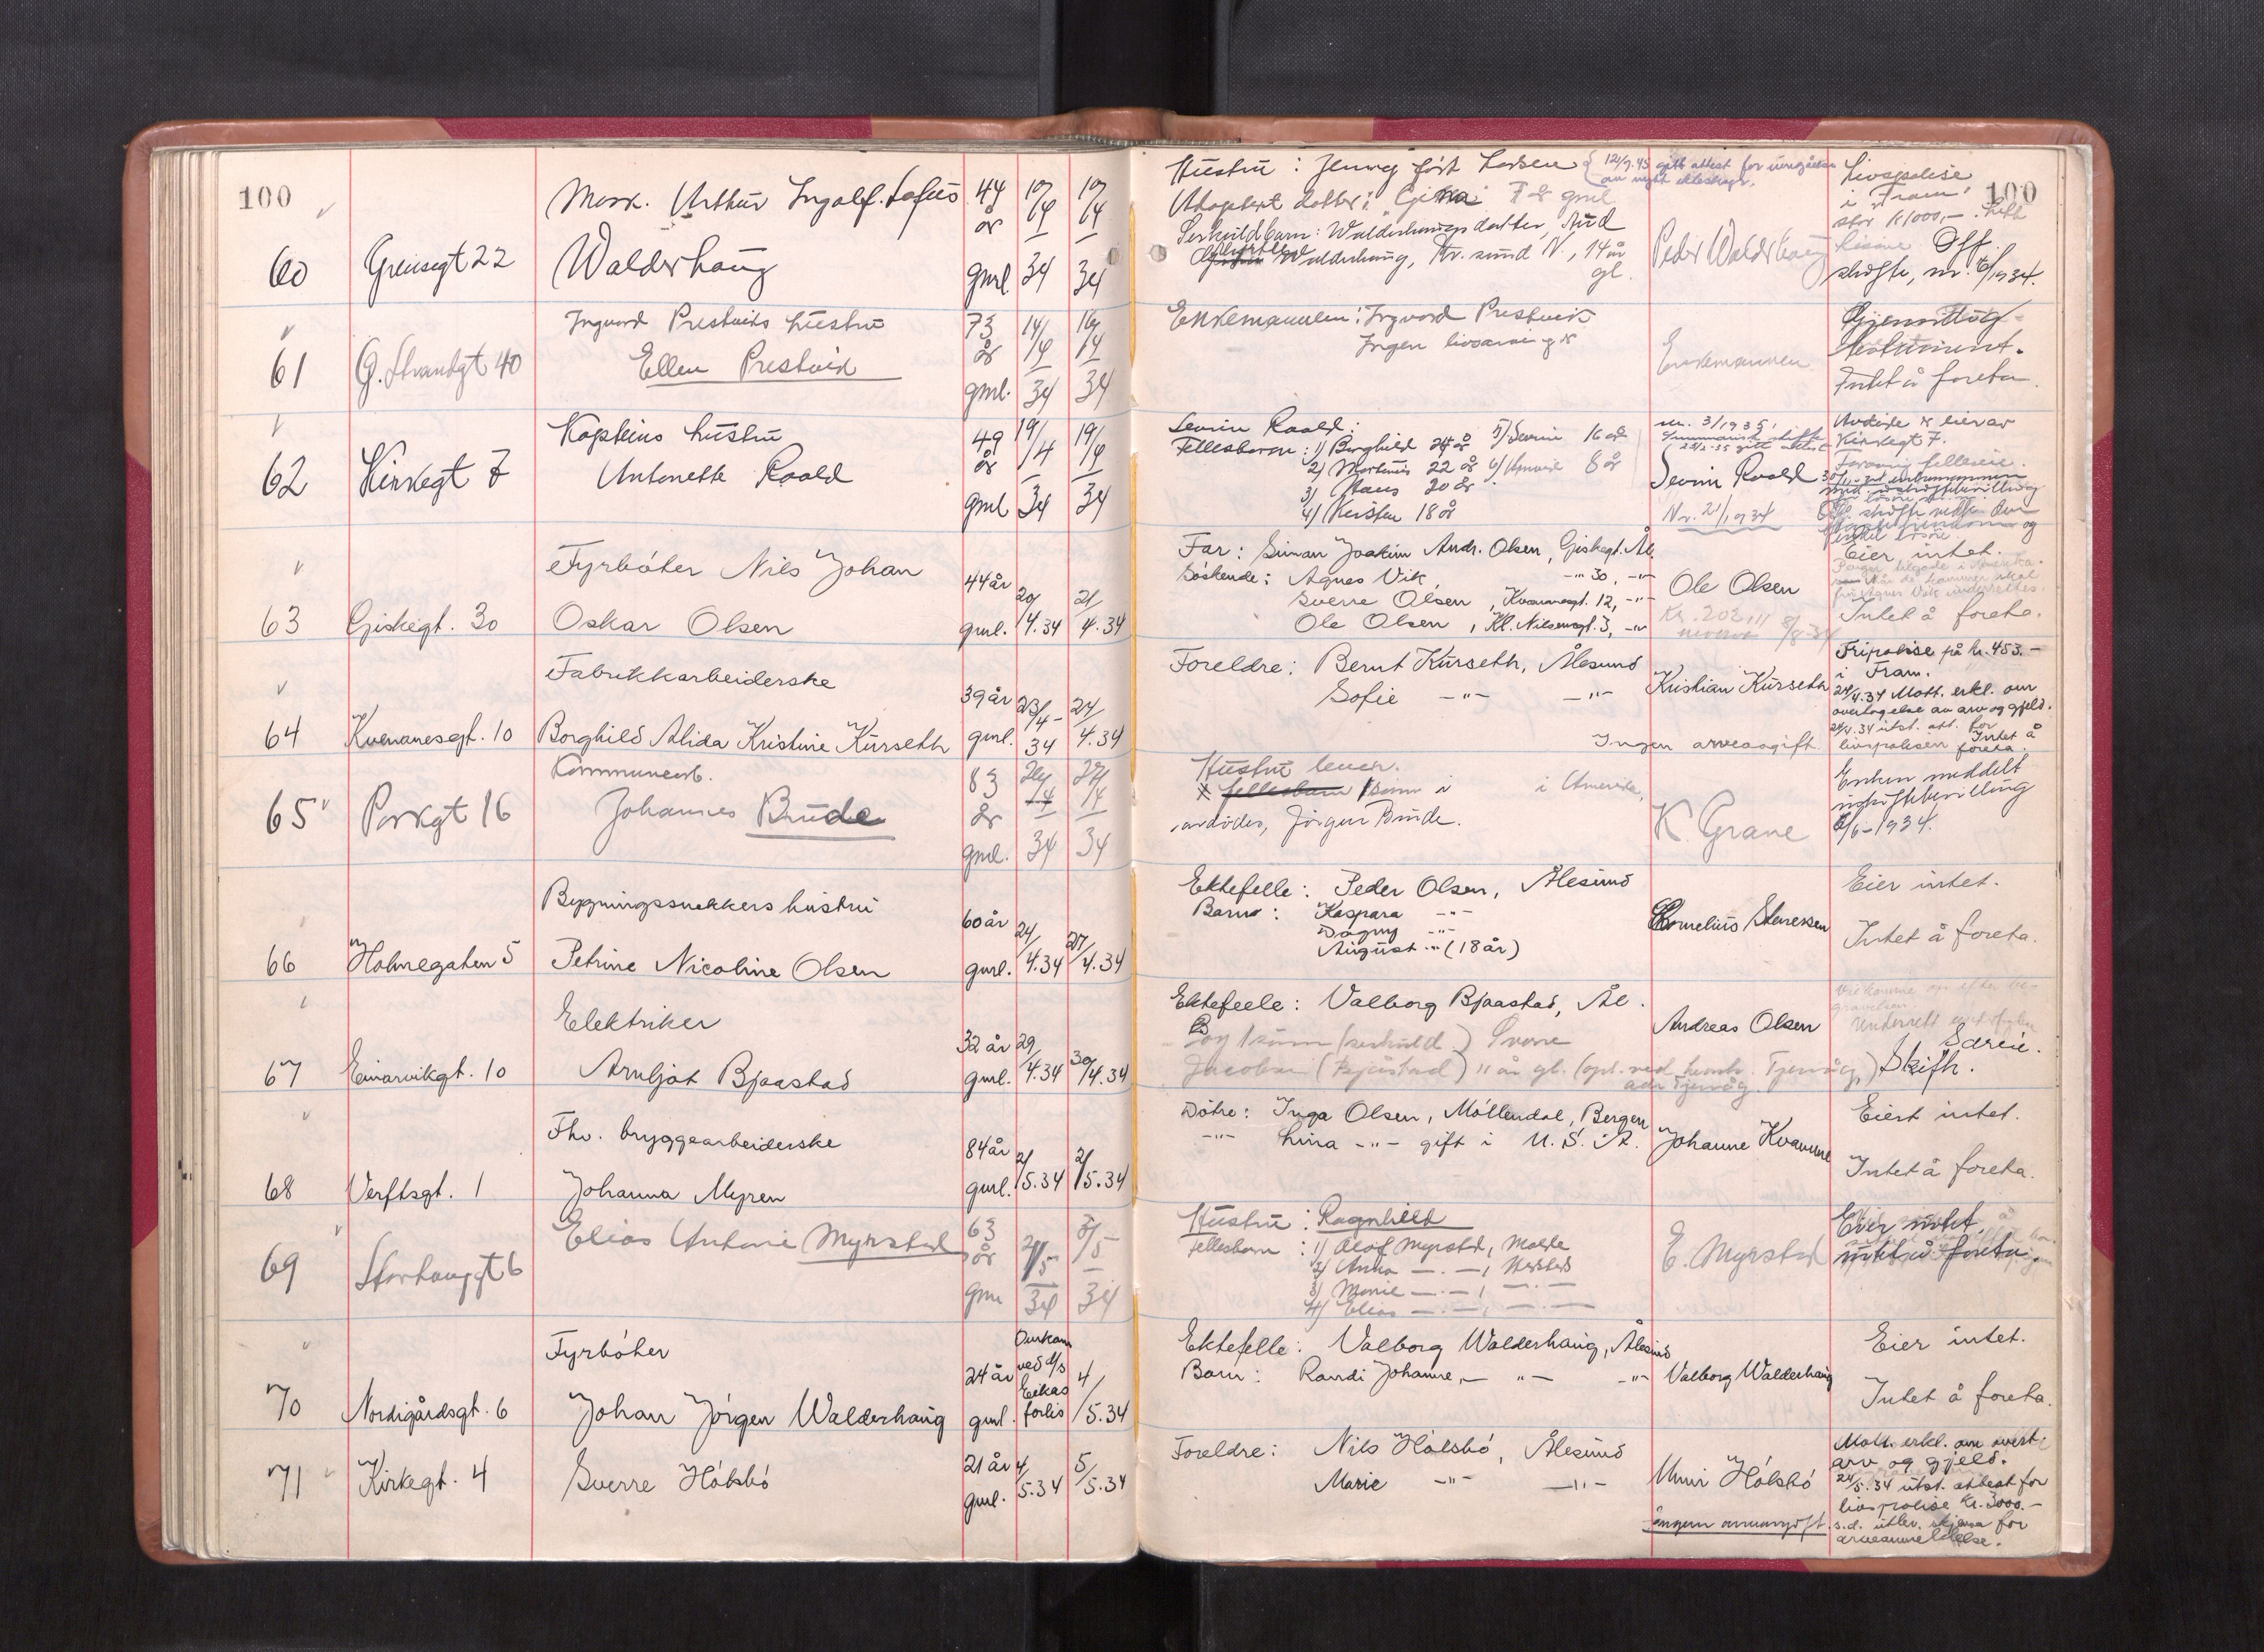 100
60
Grensegt 22
Mask. Arthur Ingolf. Lofus
Walderhaug
44 år gml.
10/4 34
10/4 34
Hustru: Jenny født Larsen
12/9.45 gitt attest for inngåelse
av nytt ekteskap.
Adoptert datter: Gjetna: 7 år gml
Serkuldbarn: Walderhaugs datter, Aud
Walderhaug, Kr.sund N., 14 år
gl.
Peder Walderhaug
Livspolise
i "Fram"
stor kr 1000,-.
100
Off.
skifte, nr. 6/1934.
61
G. Strandgt 40
Ingvard Prestviks hustru
Ellen Prestvik
73 år gml.
14/4 34
16/4 34
Enkemannen: Ingvard Prestvik
Ingen livsarvinger
Enkemannen
Gjensidig
testament.
Intet å foreta.
62
Kirkegt 7
Kapteins hustru
Antonette Raald
49 år gml
19/4 34
19/4 34
Severin Raald:
Fellesbarn: 1) Borghild 24 år 5) Severin 16 år
2) Martinus 22 år 6) 8 år
3) Hans 20 år
4) Kirsten 18 år
nr. 3/1935,
Severin Raald
Nr. 2/1934
Avdøde er eier av
Kirkegt 7.
63
Giskegt. 30
Fyrbøter Nils Johan
Oskar Olsen
44 år gml.
20/4.34
21/4.34
Far: Simon Joakim Andr. Olsen, Giskegt. Ål.
Søskende: Agnes Vik, -"- 30, -"-
Sverre Olsen, Kvennesgt. 12, -"-
Ole Olsen, Kl. Nilsensgt. 3, -"-
Ole Olsen
Kr. 202,11
8/8-34
Eier intet.
Intet å foreta.
64
Kvenanesgt. 10
Fabrikkarbeiderske
Borghild Alida Kristine Kurseth
39 år gml.
23/4-34
24/4.34
Foreldre: Bernt Kurseth, Ålesund
Sofie -"- -"-
Ingen arveavgift
Kristian Kurseth
Fripolise på kr. 453.-
i Fram.
24/4.34 Mott. erkl. om
overtagelse av arv og gjeld.
24/4.34 utst. att. for
livspolisen Intet å
foreta.
65
Parkgt 16
Kommunearb.
Johannes Brude
83 år gml.
24/4 34
27/4 34
Hustru lever.
fellesbarn 1 sønn i i Amerika,
avdødes, Jørgen Brude.
K. Grane
Enken meddelt
uskiftebevilling
6/6-1934.
66
Holmegaten 5
Bygningssnekkers hustru
Petrine Nicoline Olsen
60 år gml.
24/4.34
27/4.34
Ektefelle: Peder Olsen, Ålesund
Barn: Kaspara -"-
Dagny -"-
August -"- (18 år)
Cornelius Stenersen
Eier intet.
Intet å foreta.
67
Einarvikgt. 10
Elektriker
Arnljot Bjaastad
32 år gml.
29/4.34
30/4.34
Ektefelle: Valborg Bjaastad, Ål.
Og 1 sønn (serkuld) Sverre
Jacobsen (Bjåstad) 11 år gl.
Andreas Olsen
Skifte.
68
Verftsgt. 1
Fhv. bryggearbeiderske
Johanna Myren
84 år gml.
2/5.34
2/5.34
Døtre: Inga Olsen, Møllendal, Bergen
-"- Lina -"- gift i U.S.A.
Johanne Kvamme
Eiert intet.
Intet å foreta.
69
Storhauggt 6
Elias Antonie Myrstad
63 år gml
2/5 34
3/5 34
Hustru: Ragnhild
Fellesbarn: 1) Olaf Myrstad, Molde
2) Anna -"-,
3) Marie -"-, -"-
4) Elias -"-, -"-
E. Myrstad
Eier intet,
intet å foreta.
70
Nordigårdsgt. 6
Fyrbøter
Johan Jørgen Walderhaug
24 år gml.
Omkom
ved d/s
Eikas
forlis
4/5.34
Ektefelle: Valborg Walderhaug, Ålesund
Barn: Randi Johanne, -"- -"-
Valborg Walderhaug
Eier intet.
Intet å foreta.
71
Kirkegt. 4
Sverre Hólsbó
21 år gml.
4/5.34
5/5.34
Foreldre: Nils Hólsbó, Ålesund
Marie -"- -"-
Unni Hólsbó
Ingen arveavgift.
Mott. erkl. om overt.
arv og gjeld.
24/5.34 utst. attest for
livspolise kr. 3000.-
s.d. utlev. skjema for
arveanmeldelse.